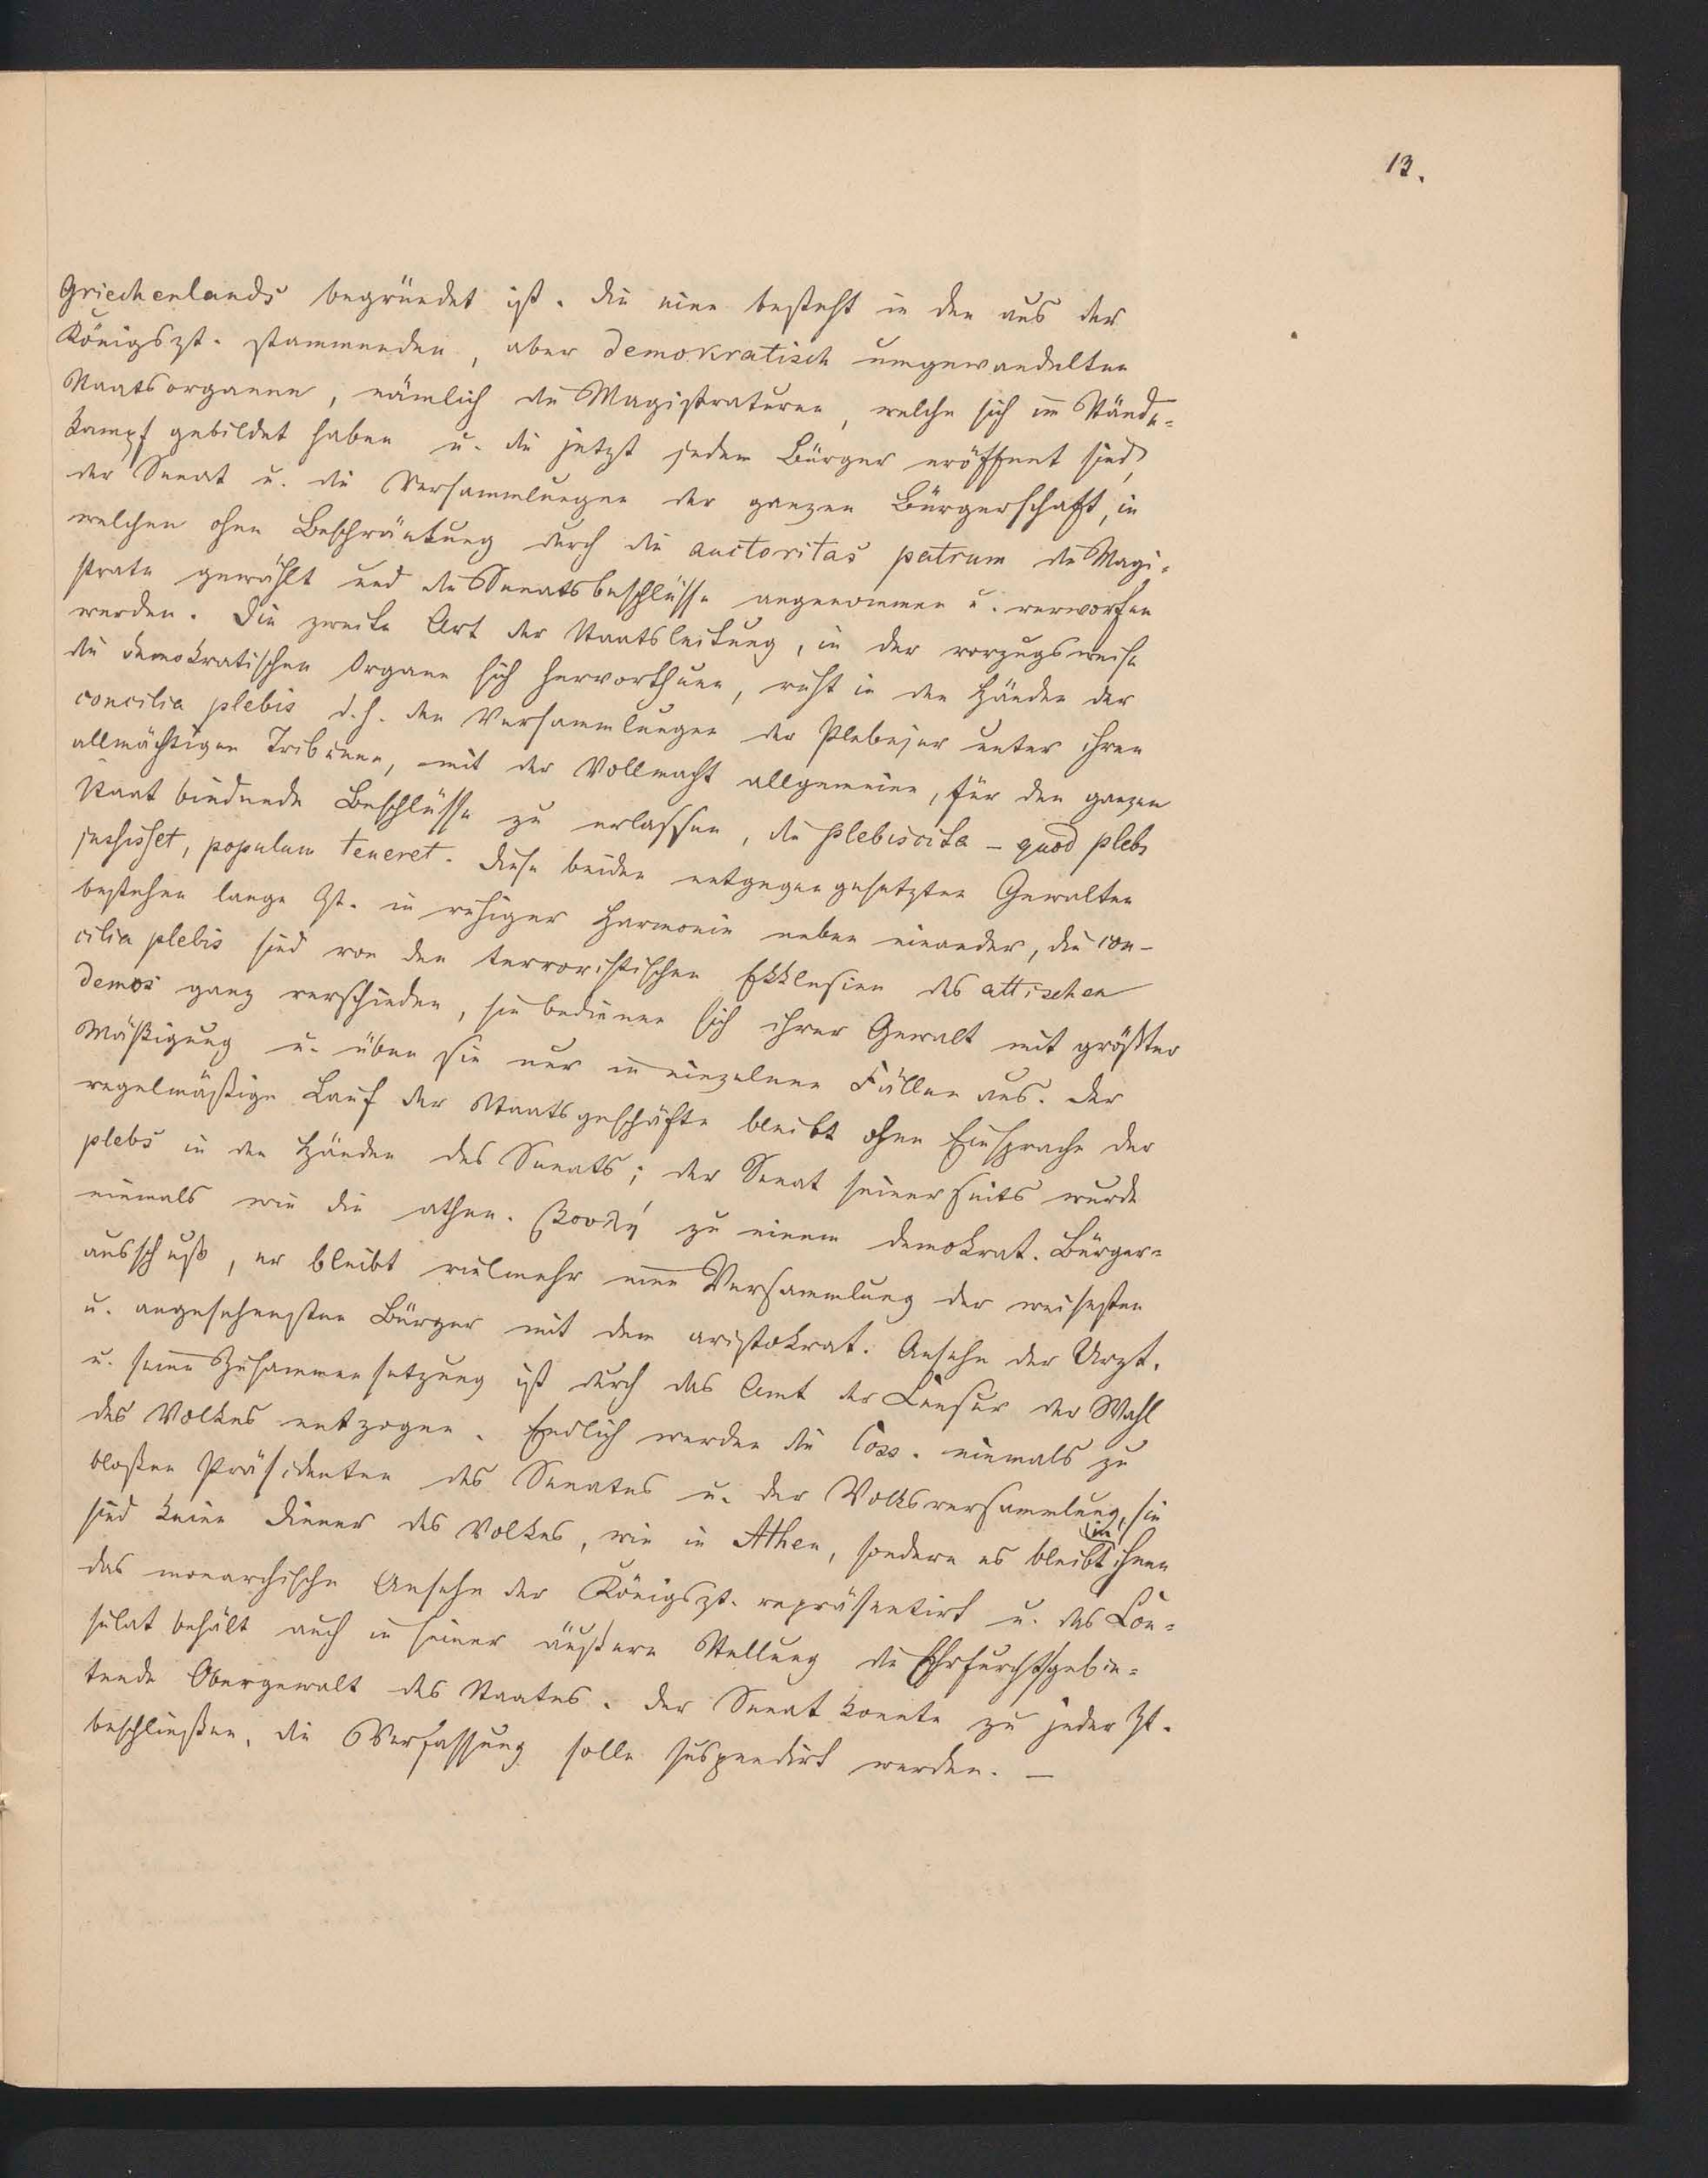 13.
Griechenlands begründet ist. Die eine besteht in den aus der
Königszt. stammenden, aber demokratisch umgewandelten
Staatsorganen, nämlich die Magistraturen, welche sich im Stände-
kampf gebildet haben u. die jetzt jedem Bürger eröffnet sind,
der Senat u. die Versammlungen der ganzen Bürgerschaft, in
welchen ohne Beschränkung durch die auctoritas patrum die Magi-
strate gewählt und die Senatsbeschlüsse angenommen u. verworfen
werden. Die zweite Art der Staatsleitung, in der vorzugsweise
die demokratischen Organe sich hervorthuen, ruht in den Händen der
concilia plebis d. h. den Versammlungen der Plebejer unter ihren
allmächtigen Tribunen, mit der Vollmacht allgemeine, für den ganzen
Staat bindende Beschlüsse zu erlassen, die Plebiscita – quod plebs
jussisset, populum teneret. Diese beiden entgegengesetzten Gewalten
bestehen lange Zt. in ruhiger Harmonie neben einander, die con-
cilia plebis sind von den terroristischen Ekklesien des attischen
Demos ganz verschieden, sie bedienen sich ihrer Gewalt mit größter
Mäßigung u. üben sie nur in einzelnen Fällen aus. Der
regelmäßige Lauf der Staatsgeschäfte bleibt ohne Einsprache der
plebs in den Händen des Senats; der Senat seinerseits wurde
niemals wie die athen. βουλή zu einem demokrat. Bürger-
ausschuß, er bleibt vielmehr eine Versammlung der weisesten
u. angesehensten Bürger mit dem aristokrat. Ansehn der Urzt.
u. seine Zusammensetzung ist durch das Amt der Censur der Wahl
des Volkes entzogen. Endlich werden die Coss. niemals zu
bloßen Präsidenten des Senates u. der Volksversammlung, sie
sind keine Diener des Volkes, wie in Athen, sondern es bleibt in ihnen
das monarchische Ansehn der Königszt. repräsentirt u. das Con-
sulat behält auch in seiner äußern Stellung die Ehrfurchtgebie-
tende Obergewalt des Staates. Der Senat konnte zu jeder Zt.
beschließen, die Verfassung solle suspendirt werden. –